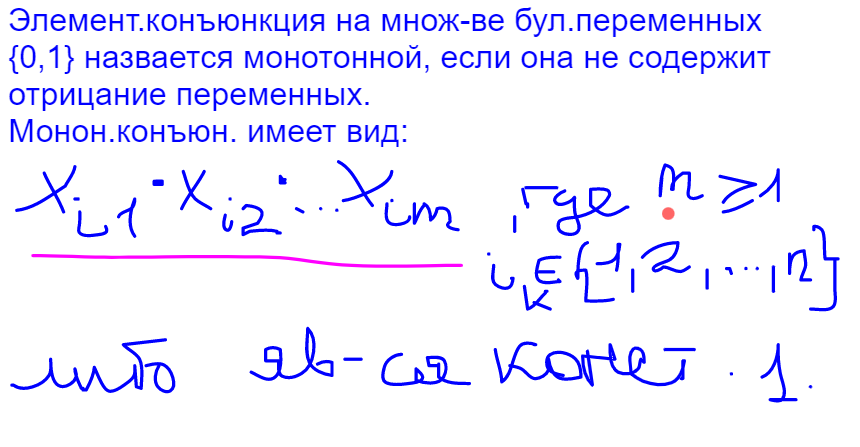 Элемент.конъюнкция на множ-ве бул.переменных
{0,1} назвается монотонной, если она не содержит
отрицание переменных.
Монон.конъюн. имеет вид:
x_{i1} · x_{i2} · ... x_{im}, где m ≥ 1
i_k ∈ {1, 2, ..., n}
либо яв-ся конст. 1.